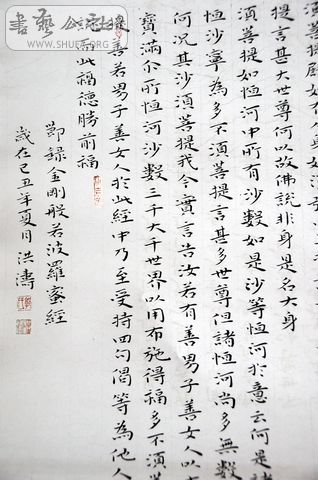 須菩提
提言甚大世尊何以故佛說非身是名大身
須菩提如恒河中所有沙數如是沙等恒河於意云何是諸
恒沙寧為多不須菩提言甚多世尊但諸恒河尚多無數
何況其沙須菩提我今實言告汝若有善男子善女人以
寶滿尔所恒河沙數三千大千世界以用布施得福多不須
善若男子善女人於此經中乃至受持四句偈等為他人
而此福德勝前福
節錄金剛般若波羅蜜經
歲在己丑年夏月洪濤
www.SHUFA.ORG